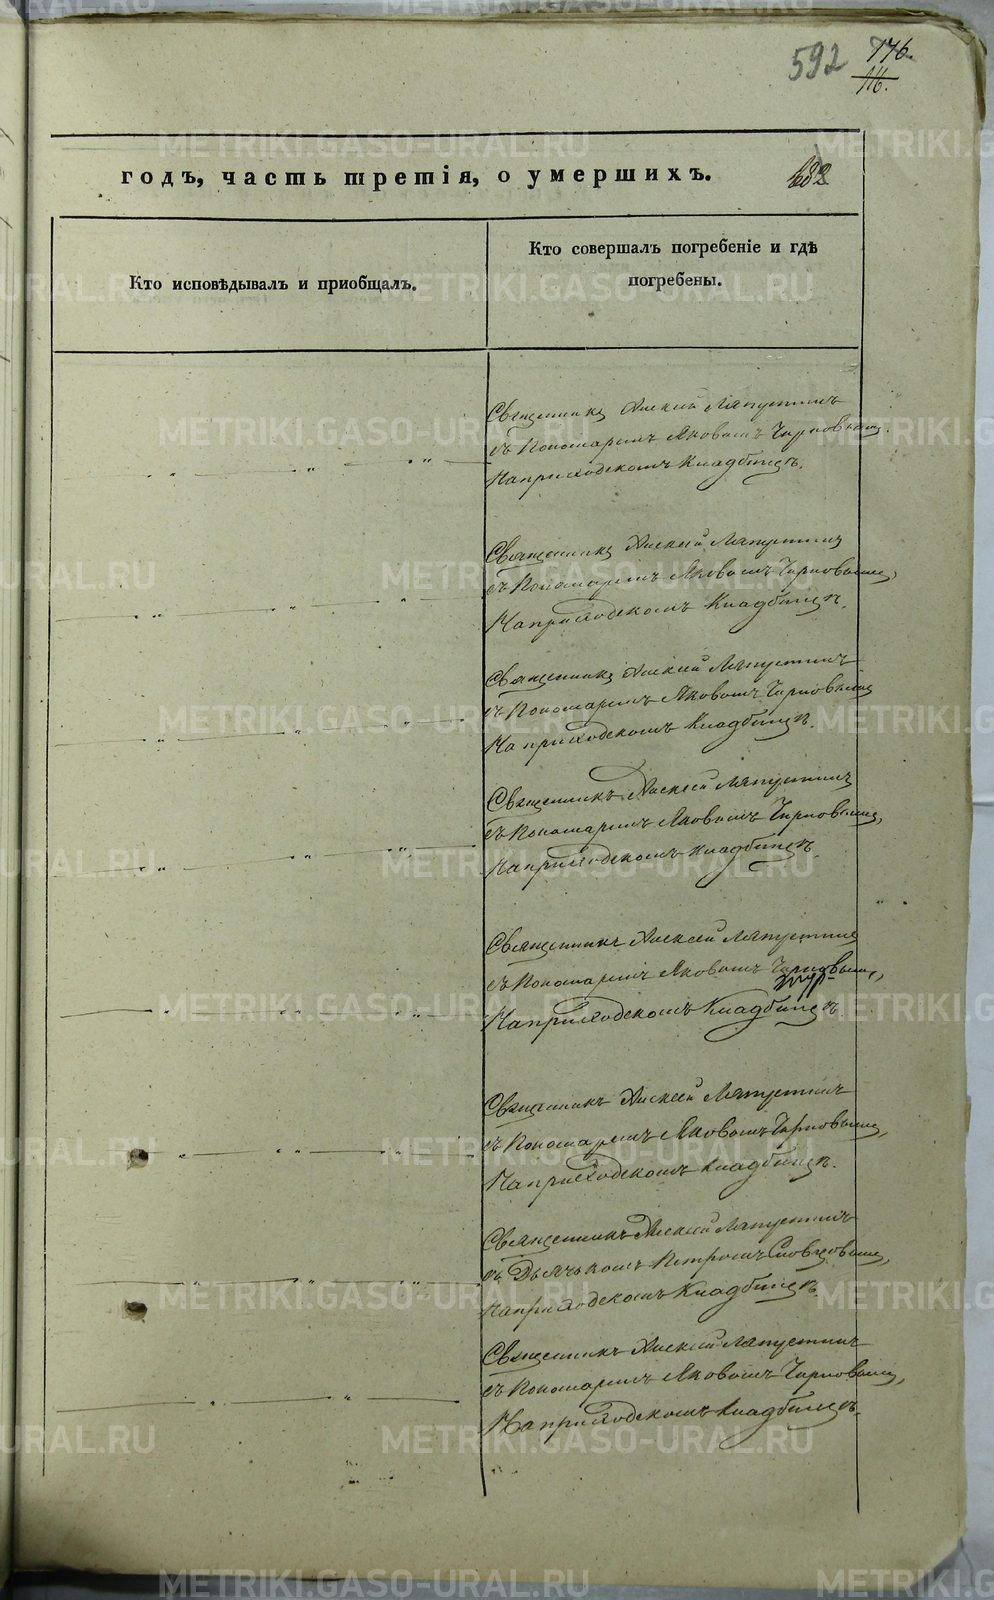 592
176.
116.
годъ, часть третія, о умершихъ.
682
Кто исповѣдывалъ и пріобщалъ.
Кто совершалъ погребеніе и гдѣ
погребены.
Священникъ Алексѣй Ляпустинъ
съ Пономаремъ Яковомъ Чирковымъ
На приходскомъ Кладбищѣ.
Священникъ Алексѣй Ляпустинъ
съ Пономаремъ Яковомъ
На приходскомъ Кладбищѣ.
Священникъ Алексѣй Ляпустинъ
съ Пономаремъ Яковомъ
На приходскомъ Кладбищѣ.
Священникъ Алексѣй Ляпустинъ
съ Пономаремъ Яковомъ
На приходскомъ кладбищѣ.
Священникъ Алексѣй Ляпустинъ
съ Пономаремъ Яковомъ
На приходскомъ Кладбищѣ
Священникъ Алексѣй Ляпустинъ
съ Пономаремъ Яковомъ
На приходскомъ кладбищѣ.
Священникъ Алексѣй Ляпустинъ
съ Дьячькомъ Петромъ Словцовымъ,
На приходскомъ Кладбищѣ
Священникъ Алексѣй Ляпустинъ
съ Пономаремъ Яковомъ
На приходскомъ кладбищѣ.
METRIKI.GASO-URAL.RU